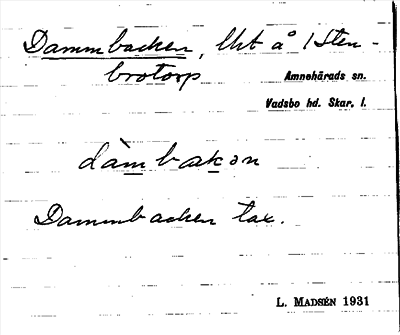 Dammbacken, lht å 1 Sten-
brotorp
Amnehärads sn.
Vadsbo hd. Skar. l.
dàmbakən
Dammbacken tax.
L. MADSÉN 1931